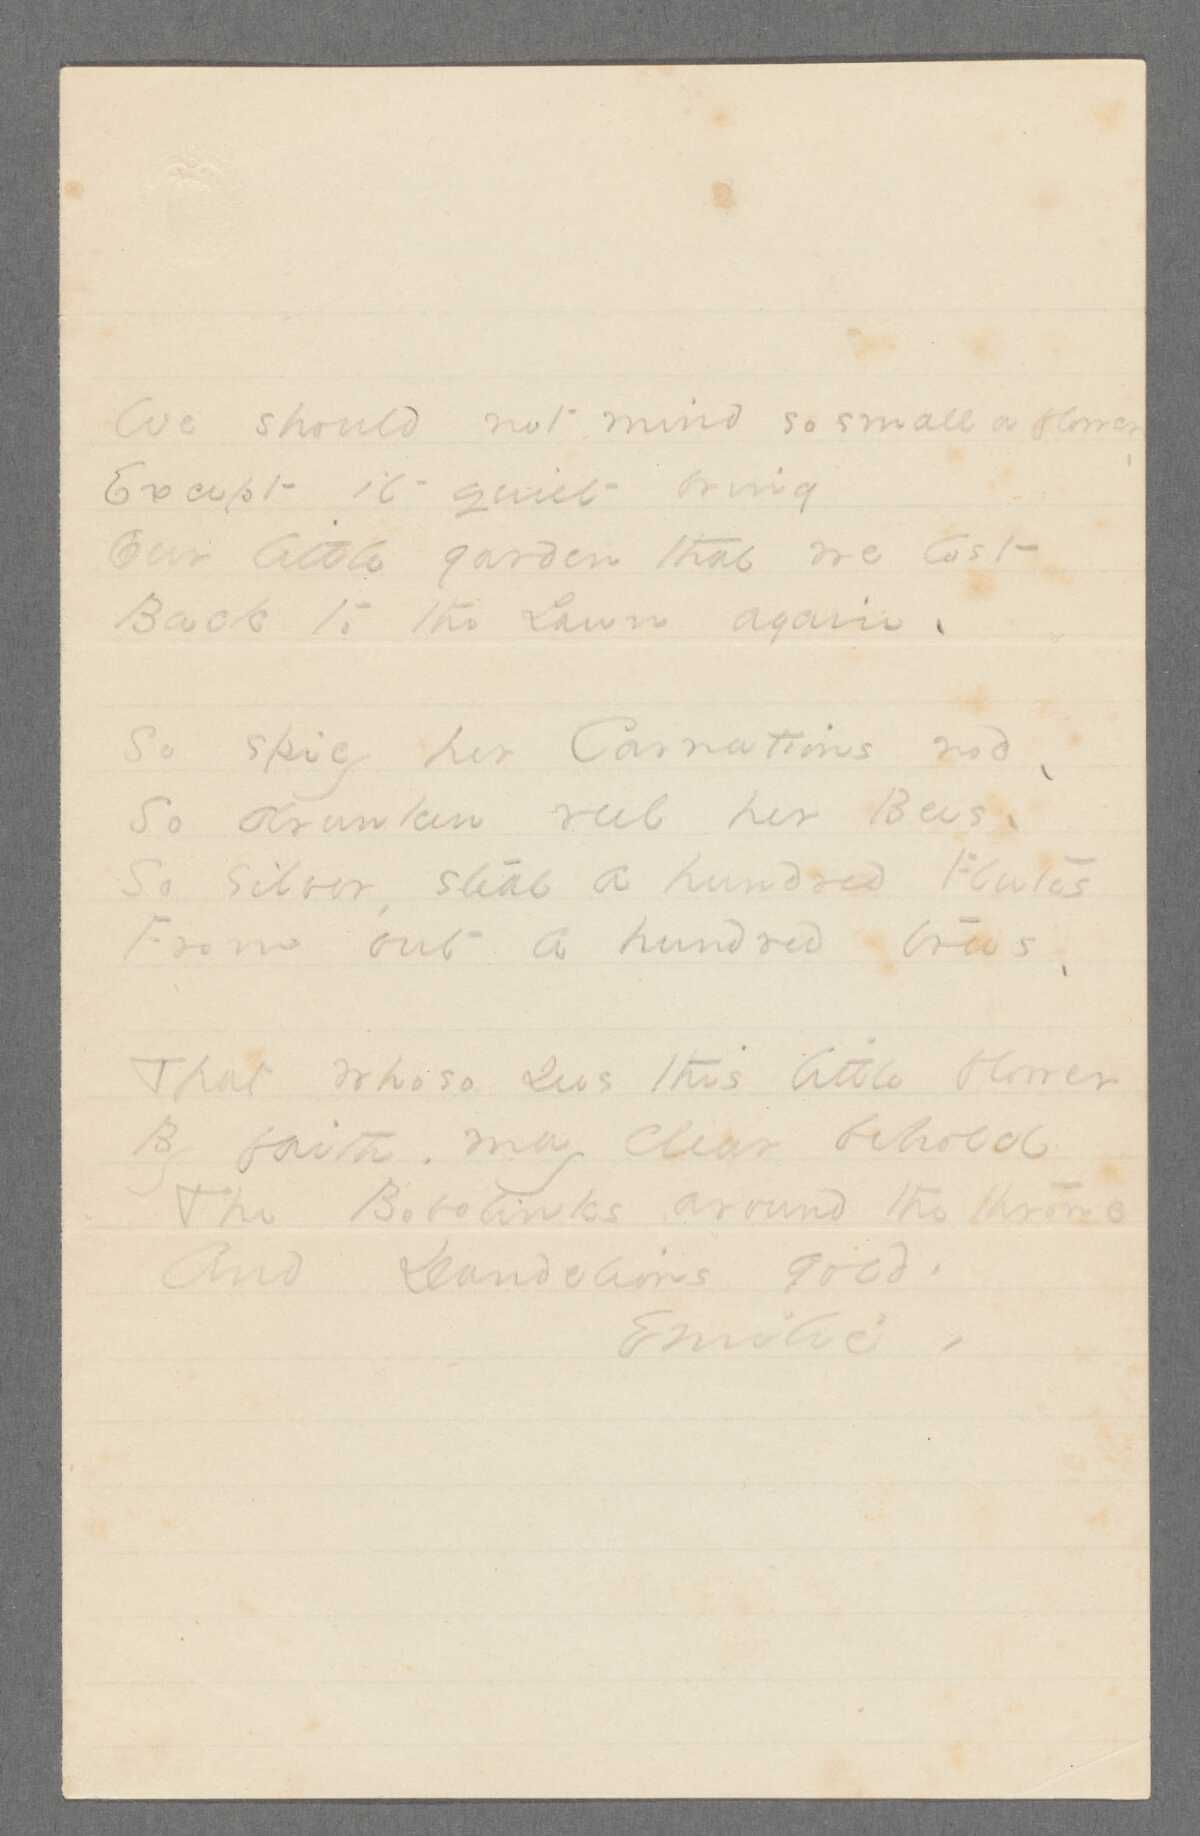 We should not mind so small a flower,
Except it quiet bring
Our little garden that we lost
Back to the Lawn again.

So spicy her Carnations nod,
So drunken reel her Bees,
So silver, steal a hundred Flutes
From out a hundred trees,

That whoso sees this little flower
By faith, may clear behold
The Bobolinks around the throne
And Dandelions gold.
Emilie,